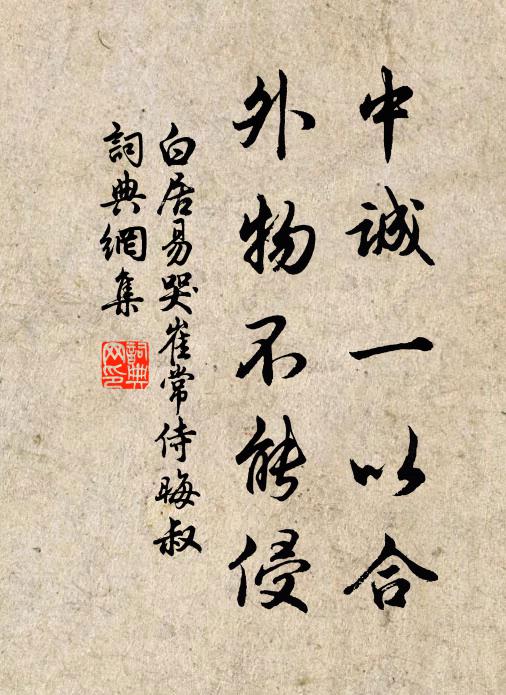 中誠一以合
外物不能侵
白居易哭崔常侍晦叔
詞典網集
詞典
网印